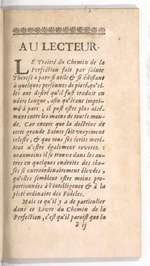 AU LECTEUR.
LE Traité du Chemin de la
Perfection fait par sainte
Therese a paru si utile & si édifiant
à quelques personnes de pieté, qu'el-
les ont desiré qu'il fust traduit en
nôtre langue, afin qu'étant
à part, il pust estre plus
ment entre les mains de tout le mon-
de. Car encore que la doctrine de
cette grande Sainte soit
celeste, & que tous ses écrits meri-
tent d'estre également
neanmoins il se trouve dans les au-
tres en quelques endroits des cho-
ses si extraordinairement élevées,
qu'elles semblent estre moins pro-
portionnées à l'intelligence & à la
des Fidelles.
Mais ce qu'il y a de particulier
dans ce Livre du Chemin de la
Perfection, c'est qu'il paroist que la
ã ij